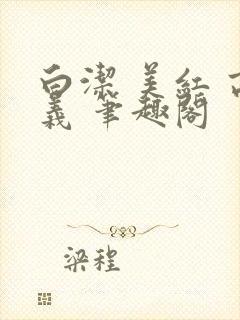 白潔 美紅 高
義 筆趣閣
梁程